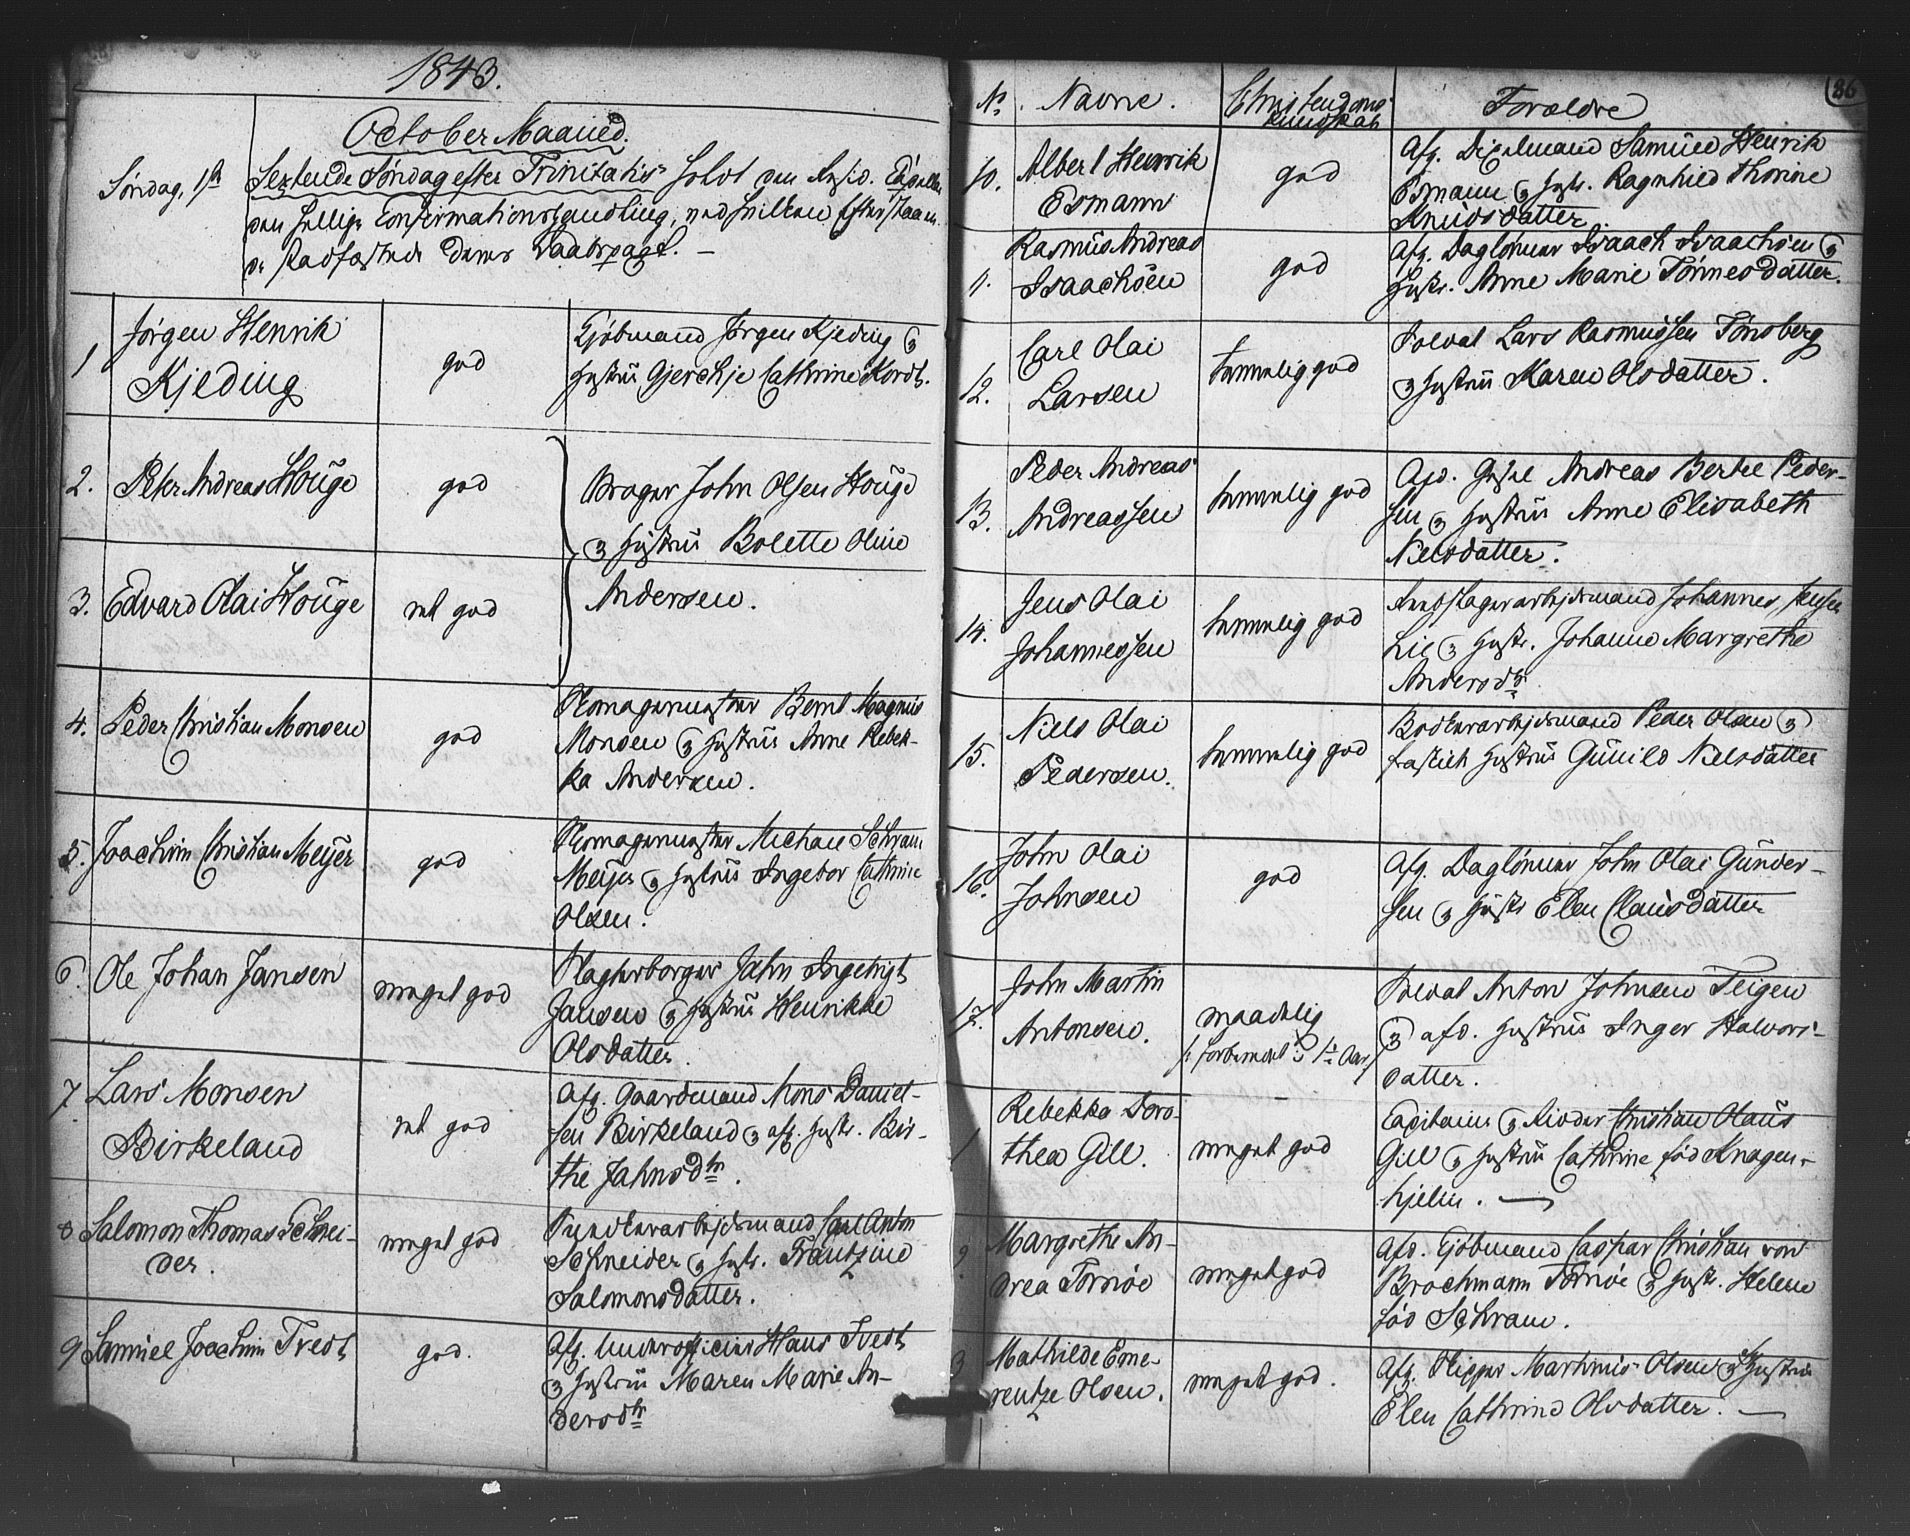 1843.
October Maaned.
Søndag, 1ste
Sextende Søndag efter Trinitatis holdt den
den hellige Confirmationshandling, ved hvilken Efterstaaen-
de stadfæstede deres Daabspagt. –
1
Jørgen Henrik
Kjeding
god
Kjøbmand Jørgen Kjeding &
Hustru Gjerchje Cathrine Kordt.
2.
Peter Andreas Houge
god
Borger John Olsen Houge
& Hustru Bolette Oline
Andersen.
3.
Edvard Olai Houge
ret god
4.
Peder Christian Monsen
god
Skomagermester Bernt Magnus
Monsen & Hustru Anne Rebek-
ka Andersen.
5.
Joachim Christian Meÿer
god
Skomagermester Michael Schram
Meÿer & Hustru Ingebor Cathrine
Olsen.
6.
Ole Johan Jansen
meget god
Slagterborger Jahn Ingebrigt
Jansen & Hustru Henrikke
Olsdatter.
7.
Lars Monsen
Birkeland
ret god
Afg. Gaardmand Mons Daniel-
sen Birkeland & afg. Hustr. Bir-
the Jahnsdtr.
8
Salomon Thomas Schnei-
der.
meget god
Carl Anton
Schneider & Hustr. Frantzine
Salomonsdatter.
9
Samuel Joachim Tvedt
god.
Afg. Underofficier Hans Tvedt
& Hustru Maren Marie An-
dersdtr
86
No.
Navne.
Christendoms
kundskab
Forældre
10.
Albert Henrik
Esmann
god
Afg. Samuel Henrik
Esmann & Hustr. Ragnhild Thorine
Knudsdatter
11.
Rasmus Andreas
Isaachsen
god
Afg. Daglønner Isaach Isaachsen &
Hustr. Anne Marie Tønnesdatter.
12.
Carl Olai
Larsen
temmelig god
Soldat Lars Rasmussen Tønsberg
& Hustru Karen Olsdatter.
13.
Peder Andreas
Andreassen
temmelig god
Afd. Andreas Bertel Peder-
sen & Hustru Anne Elisabeth
Nielsdatter.
14.
Jens Olai
Johannessen
temmelig god
Johannes Jensen
Lie & Hustr. Johanne Margrethe
Andersdtr.
15.
Niels Olai
Pedersen.
temmelig god
Bødkerarbejdsmand Peder Olsen &
fraskilt Hustru Gunild Nielsdatter
16.
John Olai
Johnsen
god
Afg. Daglønner John Olai Gunder-
sen & Hustr Elen Clausdatter
17.
John Martin
Antonsen.
maadelig
Soldat Anton Johnsen Teigen
& afd. Hustru Inger Halvors-
datter.
1
Rebekka Doro-
thea Gill.
meget god
Capitain & Reder Christian Olaus
Gill & Hustru Cathrine fød Knagen-
hjelm. —
2
Margrethe An-
drea Tornöe
meget god
Afd. Kjøbmand Caspar Christian von
Brochmann Tornöe & Hustr. Helene
fød Schram.
3
Mathilde Eme-
rentze Olsen.
meget god.
Afg. Skipper Martinus Olsen & Hustru
Elen Cathrine Olsdatter. —